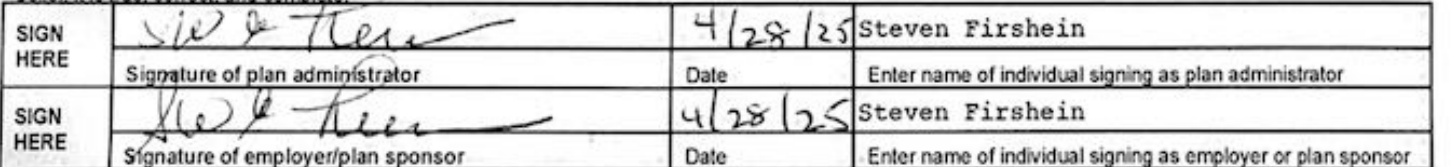 SIGN HERE 4/28/25 Steven Firshein
Signature of plan administrator Date Enter name of individual signing as plan administrator
SIGN HERE 4/28/25 Steven Firshein
Signature of employer/plan sponsor Date Enter name of individual signing as employer or plan sponsor